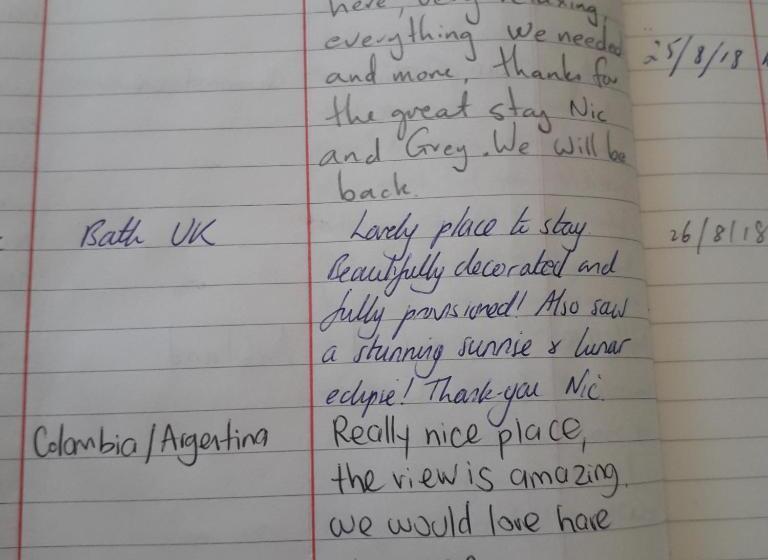 here, very relaxing,
everything we needed
25/8/18
and more, thanks for
the great stay Nic
and Grey. We will be
back.
Bath UK
Lovely place to stay
26/8/18
Beautifully decorated and
fully provisioned! Also saw
a stunning sunrise & lunar
eclipse! Thank-you Nic.
Colombia/Argentina
Really nice place,
the view is amazing.
we would love have